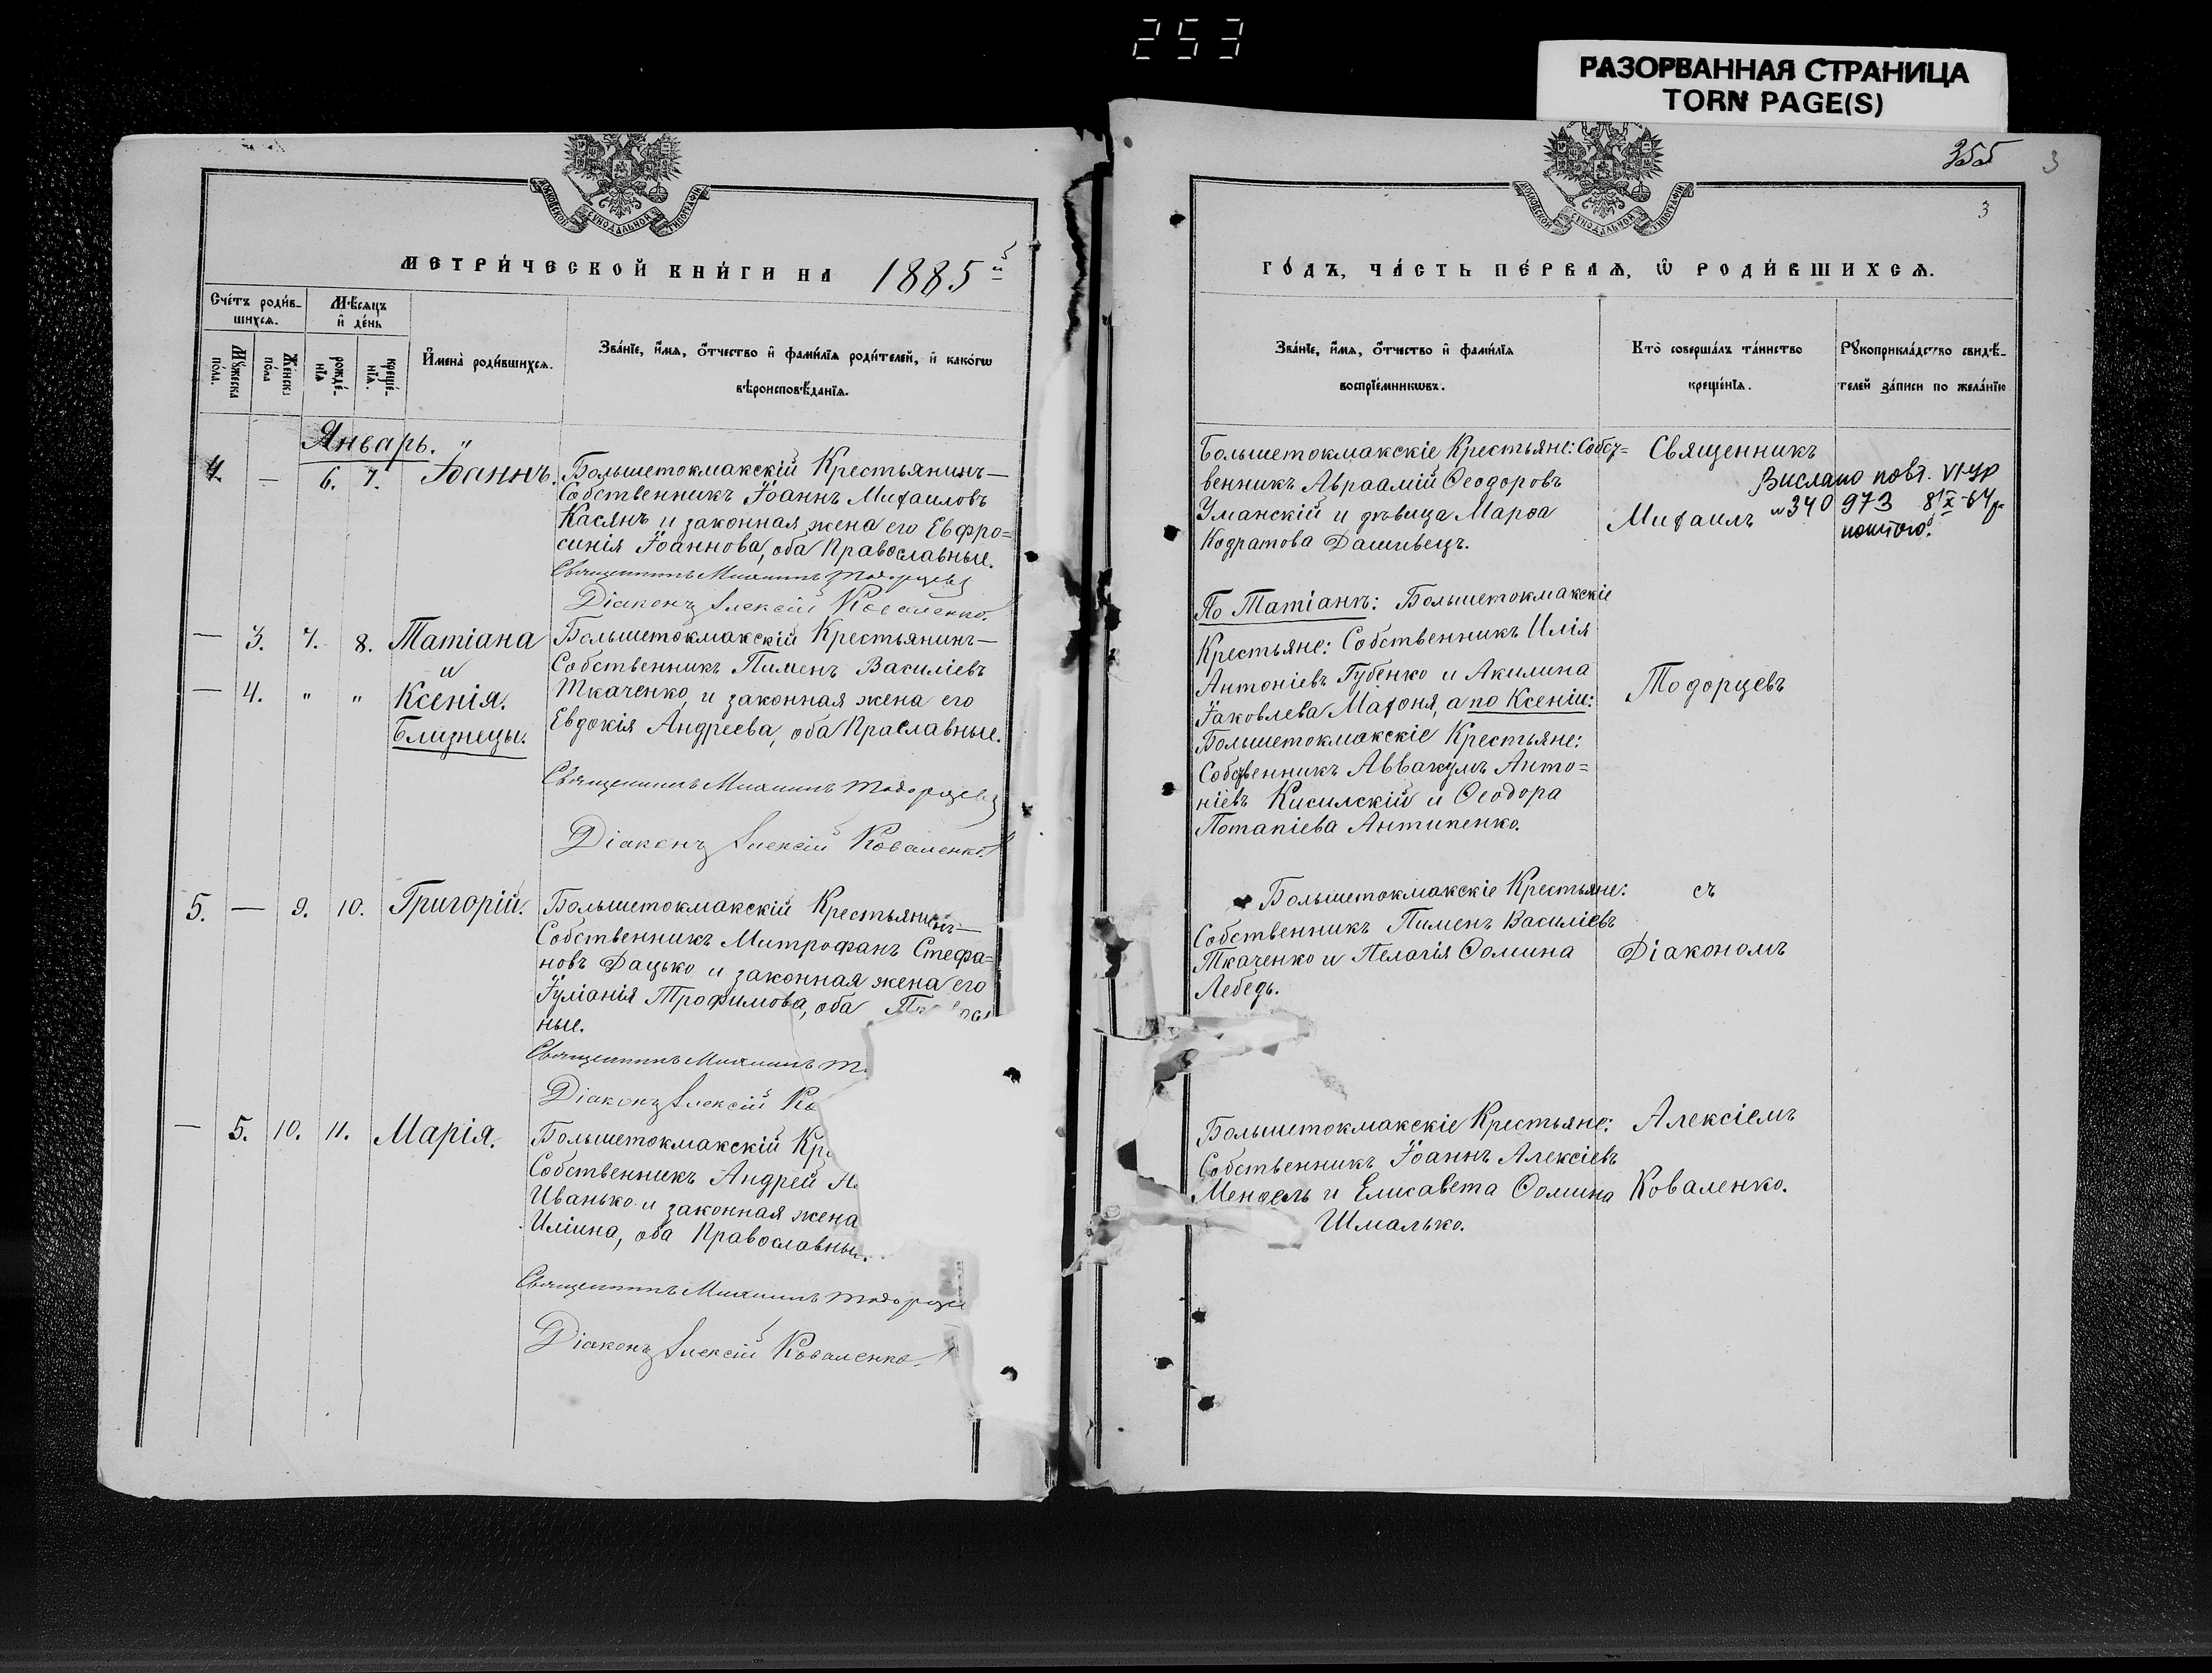 253
РАЗОРВАННАЯ СТРАНИЦА
TORN PAGE(S)
МОСКОВСКОЙ СѴНОДАЛЬНОЙ ТИПОГРАФІИ
МЕТРИ́ЧЕСКОЙ КНИ́ГИ НА 1885й
Сче́тъ роди́в-
шихсѧ.
Мѣсѧцъ
и҆ де́нь
Мꙋ́жеска
по́ла.
Же́нска
по́ла
рожде́-
нїѧ
креще́-
нїѧ.
И҆мена̀ роди́вшихсѧ.
Зва́нїе, и҆́мѧ, ѻ҆́тчество и҆ фами́лїѧ роди́телей, и҆ како́гѡ
вѣроисповѣ́данїѧ.
Январь. "
4. — 6. 7. Іоаннъ. Большетокмакскій Крестьянинъ—
Собственникъ Іоаннъ Михаиловъ
Касянъ и законная жена его Евфро=
синія Іоаннова, оба Православные.
Священникъ Михаилъ Тодорцевъ
Діаконъ Алексій Коваленко.
— 3. 7. 8. Татіана Большетокмакскій Крестьянинъ—
и Собственникъ Пименъ Василіевъ
— 4. " " Ксенія. Ткаченко, и законная жена его
Близнецы. Евдокія Андреева, оба Праславные.
Священникъ Михаилъ Тодорцевъ
Діаконъ Алексій Коваленко.
5. — 9. 10. Григорій. Большетокмакскій Крестьянинъ—
Собственникъ Митрофанъ Стефа=
новъ Дацько и законная жена его
Іуліанія Трофимова, оба
ные.
Священникъ Михаилъ Т
Діаконъ Алексій Ко
— 5. 10. 11. Марія. Большетокмакскій Кр
Собственникъ Андрей
Иванько и законная жена
Иліина, оба Православны.
Священникъ Михаилъ Тодорце
Діаконъ Алексій Коваленко.
355 3
3
МОСКОВСКОЙ СѴНОДАЛЬНОЙ ТИПОГРАФІИ
ГО́ДЪ, ЧА́СТЬ ПЕ́РВАѦ, Ѡ҆ РОДИ́ВШИХСѦ.
Зва́нїе, и҆́мѧ, ѻ҆́тчество и҆ фами́лїѧ
воспрїе́мникѡвъ.
Кто̀ соверша́лъ та́инство
креще́нїѧ.
Рꙋкоприкла́дство свидѣ́-
телей за́писи по жела́нїю
Большетокмакскіе Крестьяне: Собст=
венникъ Авраамій Ѳеодоровъ
Уманскій и дѣвица Марѳа
Кодратова Дашивецъ.
Священникъ
Михаилъ
Вислано повт.
№340973
поштою.
По Татіанѣ: Большетокмакскіе
Крестьяне: Собственникъ Илія
Антоніевъ Губенко и Акилина
Іаковлева Махоня, а по Ксеніи:
Большетокмакскіе Крестьяне:
Собственникъ Аввакумъ Анто=
ніевъ Кисилскій и Ѳеодора
Потапіева Антипенко.
Тодорцевъ
Большетокмакскіе Крестьяне:
Собственникъ Пименъ Василіевъ
Ткаченко и Пелагія Ѳомина
Лебедь.
съ
Діакономъ
Большетокмакскіе Крестьяне:
Собственникъ Іоаннъ Алексіевъ
и Елисавета Ѳомина
Шмалько.
Алексіемъ
Коваленко.